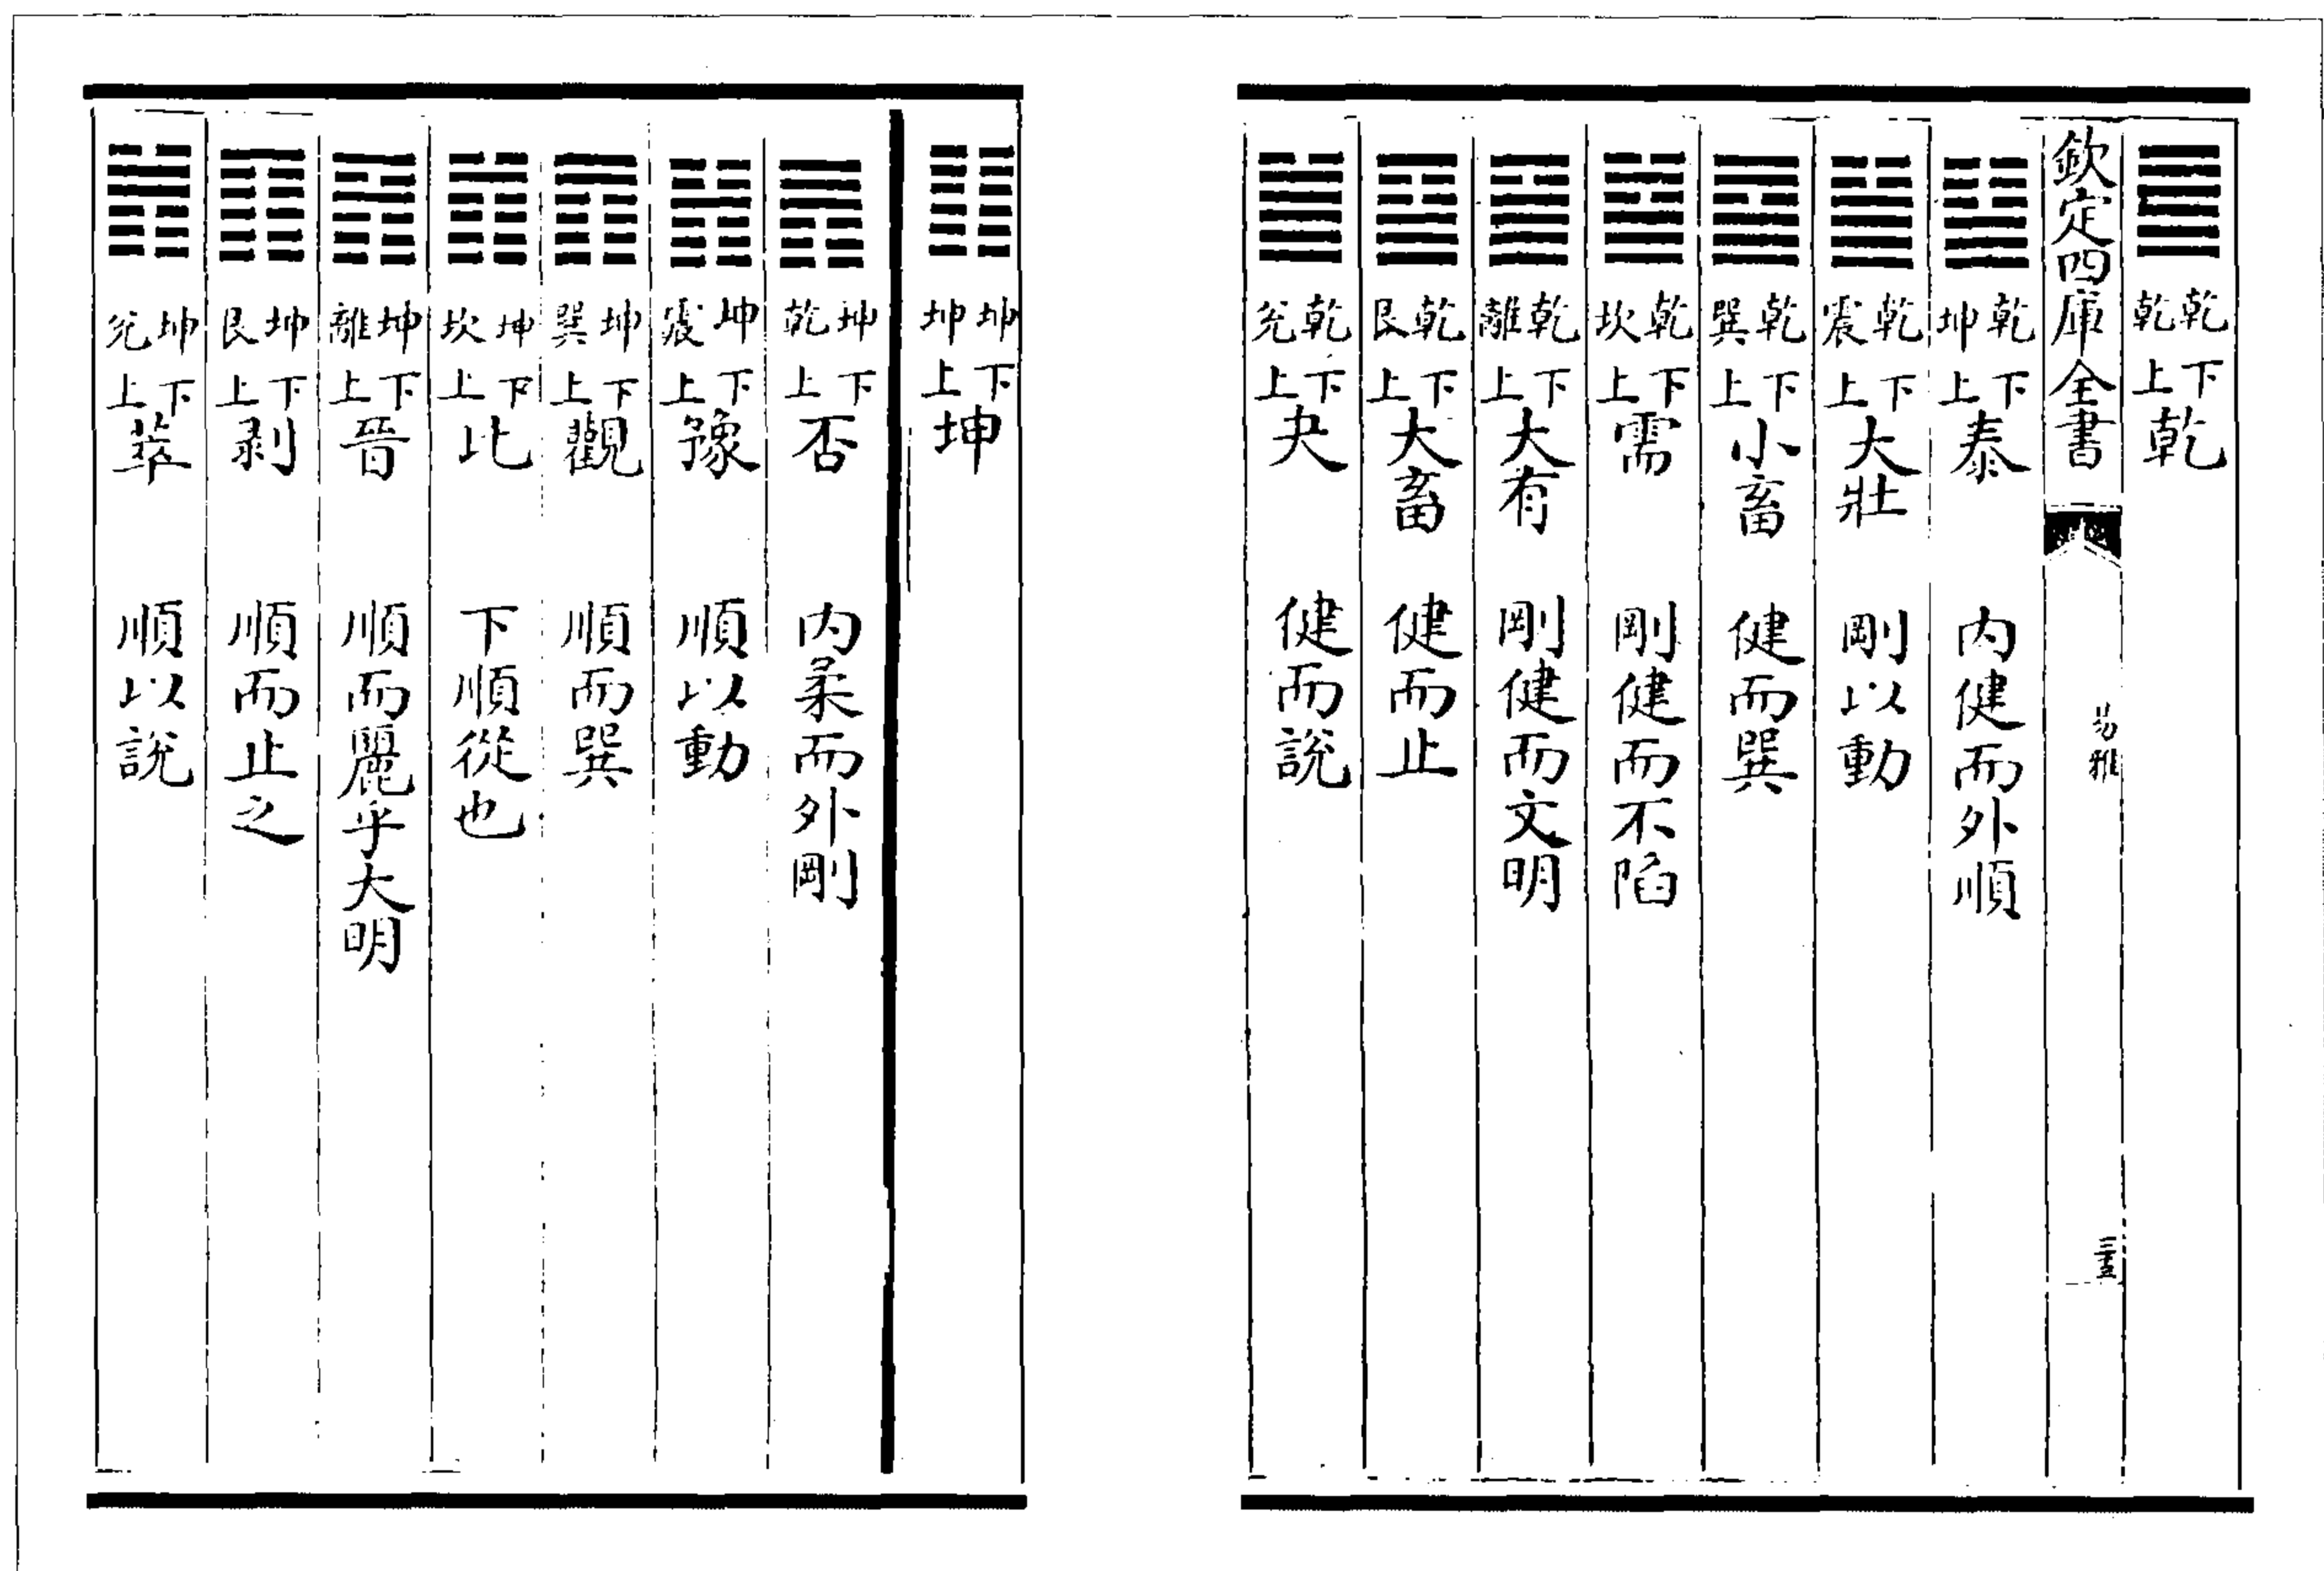 乾下乾上乾
欽定四庫全書
易雅
三五
乾下坤上泰　内健而外順
乾下震上大壯　剛以動
乾下巽上小畜　健而巽
乾下坎上需　剛健而不陷
乾下離上大有　剛健而文明
乾下艮上大畜　健而止
乾下兊上夬　健而說
坤下坤上坤
坤下乾上否　内柔而外剛
坤下震上豫　順以動
坤下巽上觀　順而巽
坤下坎上比　下順從也
坤下離上晉　順而麗乎大明
坤下艮上剥　順而止之
坤下兊上萃　順以說